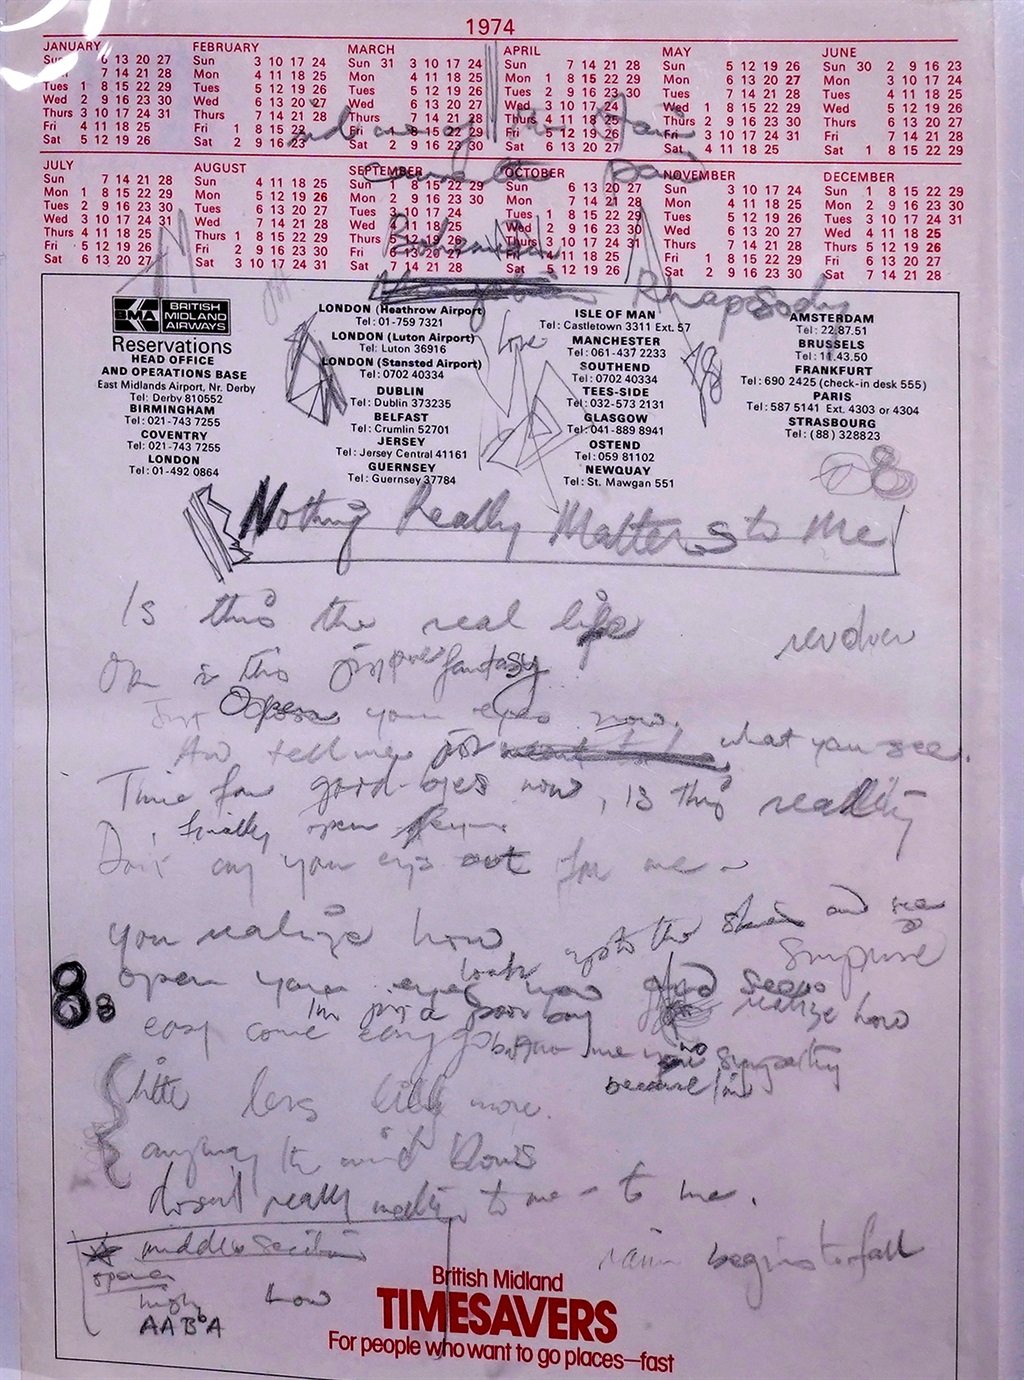 1974
JANUARY FEBRUARY MARCH APRIL MAY JUNE
Sun 6 13 20 27 Sun 3 10 17 24 Sun 31 3 10 17 24 Sun 7 14 21 28 Sun 5 12 19 26 Sun 30 2 9 16 23
7 14 21 28 Mon 4 11 18 25 Mon 4 11 18 25 Mon 1 8 15 22 29 Mon 6 13 20 27 Mon 3 10 17 24
Tues 1 8 15 22 29 Tues 5 12 19 26 Tues 5 12 19 26 Tues 2 9 16 23 30 Tues 7 14 21 28 Tues 4 11 18 25
Wed 2 9 16 23 30 Wed 6 13 20 27 Wed 6 13 20 27 Wed 3 10 17 24 Wed 1 8 15 22 29 Wed 5 12 19 26
Thurs 3 10 17 24 31 Thurs 7 14 21 28 Thurs 7 14 21 28 Thurs 4 11 18 25 Thurs 2 9 16 23 30 Thurs 6 13 20 27
Fri 4 11 18 25 Fri 1 8 15 22 Fri 1 8 15 22 29 Fri 5 12 19 26 Fri 3 10 17 24 31 Fri 7 14 21 28
Sat 5 12 19 26 Sat 2 9 16 23 Sat 2 9 16 23 30 Sat 6 13 20 27 Sat 4 11 18 25 Sat 1 8 15 22 29
JULY AUGUST SEPTEMBER OCTOBER NOVEMBER DECEMBER
Sun 7 14 21 28 Sun 4 11 18 25 Sun 1 8 15 22 29 Sun 6 13 20 27 Sun 3 10 17 24 Sun 1 8 15 22 29
Mon 1 8 15 22 29 Mon 5 12 19 26 Mon 2 9 16 23 30 Mon 7 14 21 28 Mon 4 11 18 25 Mon 2 9 16 23 30
Tues 2 9 16 23 30 Tues 6 13 20 27 Tues 3 10 17 24 Tues 1 8 15 22 29 Tues 5 12 19 26 Tues 3 10 17 24 31
Wed 3 10 17 24 31 Wed 7 14 21 28 Wed 4 11 18 25 Wed 2 9 16 23 30 Wed 6 13 20 27 Wed 4 11 18 25
Thurs 4 11 18 25 Thurs 1 8 15 22 29 Thurs 5 12 19 26 Thurs 3 10 17 24 31 Thurs 7 14 21 28 Thurs 5 12 19 26
Fri 5 12 19 26 Fri 2 9 16 23 30 Fri 6 13 20 27 Fri 4 11 18 25 Fri 1 8 15 22 29 Fri 6 13 20 27
Sat 6 13 20 27 Sat 3 10 17 24 31 Sat 7 14 21 28 Sat 5 12 19 26 Sat 2 9 16 23 30 Sat 7 14 21 28
Bohemian
Rhapsody
BMA BRITISH MIDLAND AIRWAYS
Reservations
HEAD OFFICE
AND OPERATIONS BASE
East Midlands Airport, Nr. Derby
Tel: Derby 810552
BIRMINGHAM
Tel: 021-743 7255
COVENTRY
Tel: 021-743 7255
LONDON
Tel: 01-492 0864
LONDON (Heathrow Airport)
Tel: 01-759 7321
LONDON (Luton Airport)
Tel: Luton 36916
LONDON (Stansted Airport)
Tel: 0702 40334
DUBLIN
Tel: Dublin 373235
BELFAST
Tel: Crumlin 52701
JERSEY
Tel: Jersey Central 41161
GUERNSEY
Tel: Guernsey 37784
ISLE OF MAN
Tel: Castletown 3311 Ext. 57
MANCHESTER
Tel: 061-437 2233
SOUTHEND
Tel: 0702 40334
TEES-SIDE
Tel: 032-573 2131
GLASGOW
Tel: 041-889 8941
OSTEND
Tel: 059 81102
NEWQUAY
Tel: St. Mawgan 551
AMSTERDAM
Tel: 22.87.51
BRUSSELS
Tel: 11.43.50
FRANKFURT
Tel: 690 2425 (check-in desk 555)
PARIS
Tel: 587 5141 Ext. 4303 or 4304
STRASBOURG
Tel: (88) 328823
Love
8
Nothing Really Matters to Me
Is this the real life
revolver
Or is this just pure fantasy
Just Open your eyes now.
And tell me what you see.
Time for good-byes now, is this reality
finally open
Don't cry your eyes out for me
you realize how
up to the skies and see
surprise
open your eyes look now
8 8
I'm just a poor boy realize how
easy come easy go no sympathy
because I'm
little less little more.
anyway the wind blows
doesn't really matter to me - to me.
middle section
rain begins to fall
opera
high
how
AABbA
British Midland
TIMESAVERS
For people who want to go places—fast